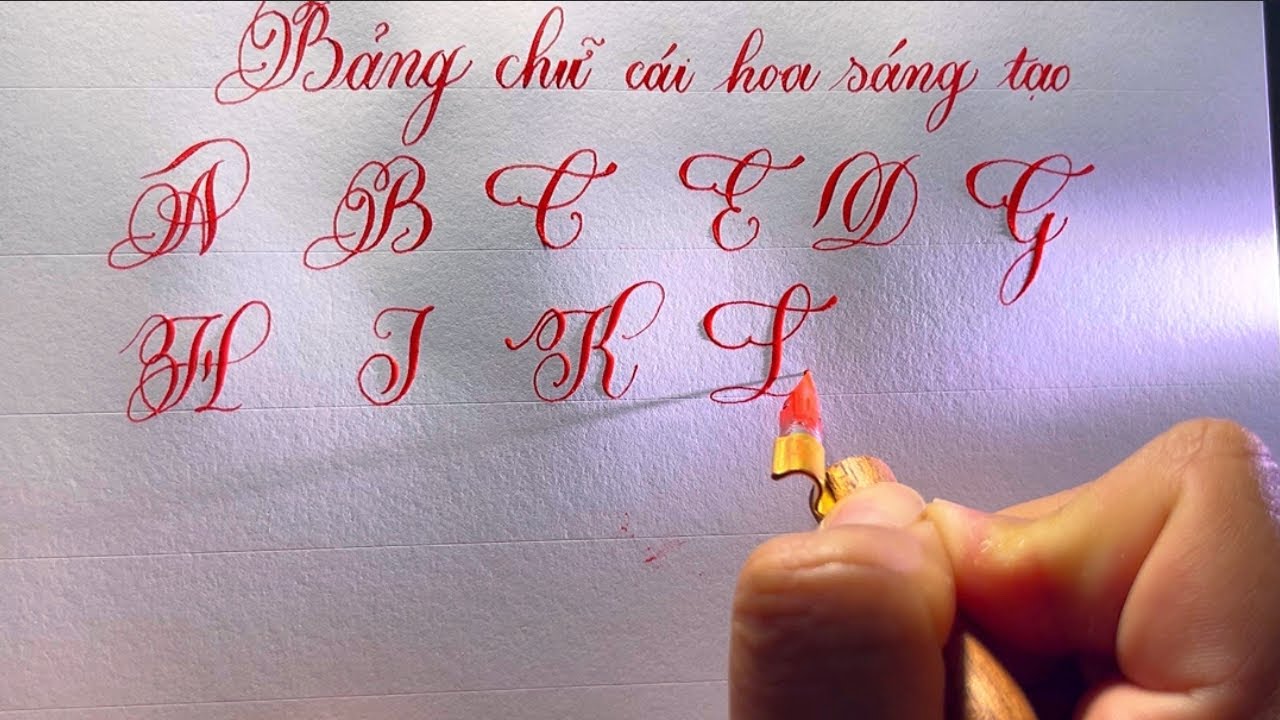 Bảng chữ cái hoa sáng tạo
A B C E D G
H I K L